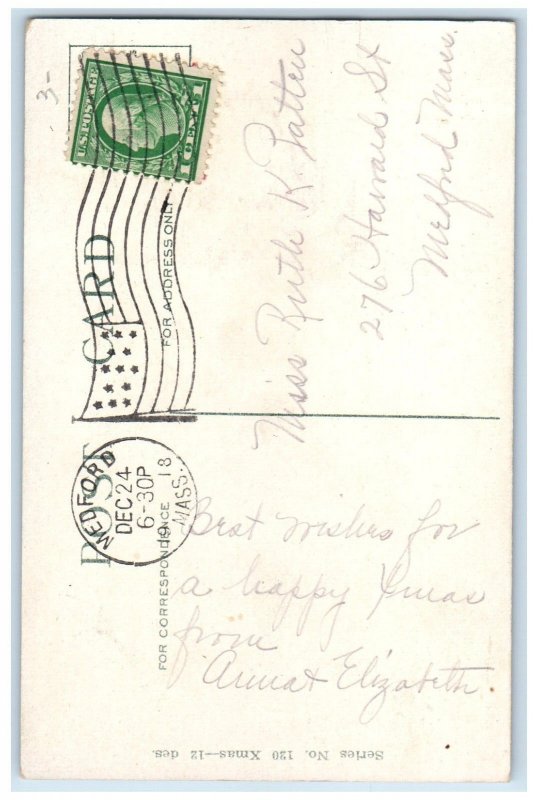 3-
U.S. POSTAGE
1 CENT 1
POST CARD
MEDFORD
DEC 24
6-30P
1918
MASS.
FOR CORRESPONDENCE
FOR ADDRESS ONLY
Best wishes for
a happy Xmas
from
Anna & Elizabeth.
Miss Ruth K. Patten
276 Harvard St
Medford Mass.
Series No. 120 Xmas—12 des.